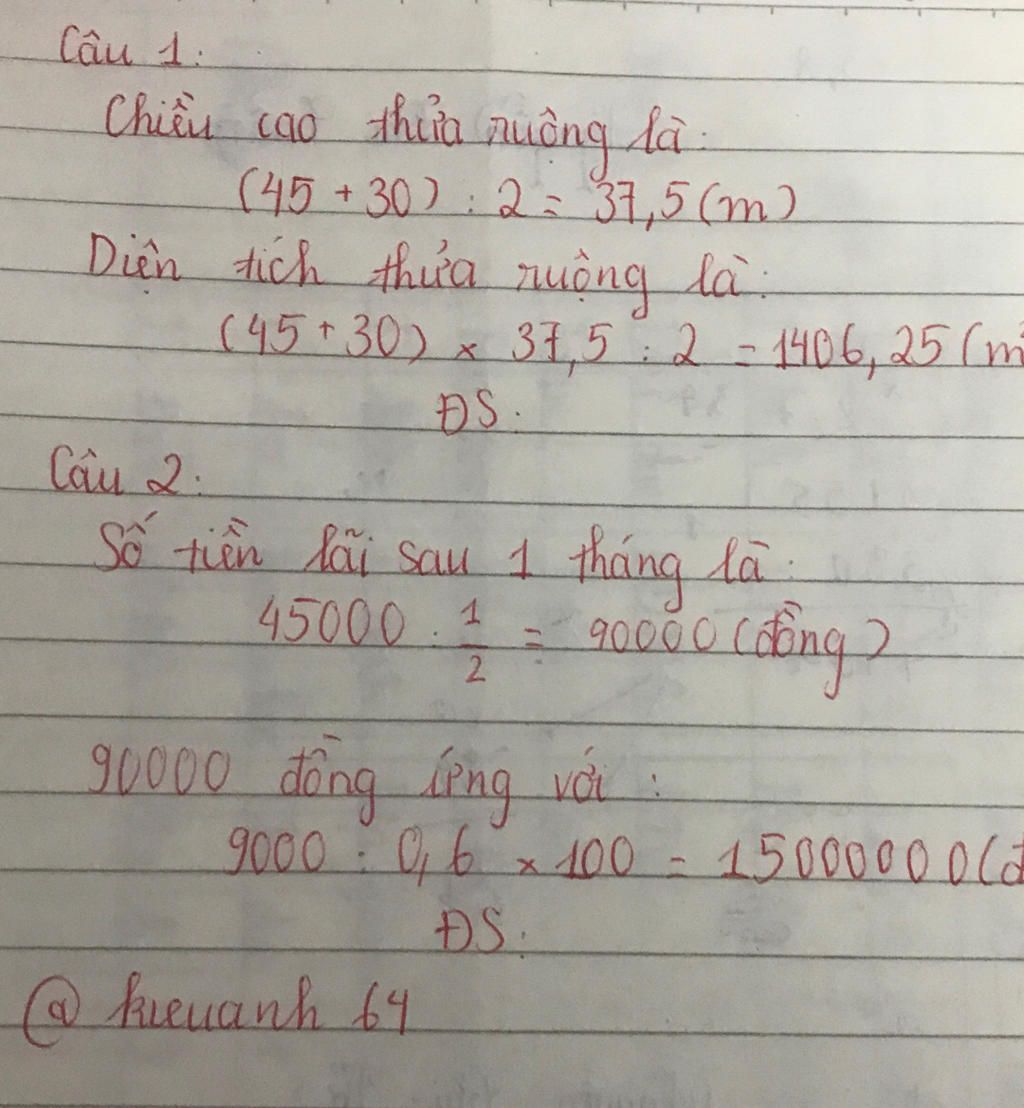 Câu 1:
Chiều cao thửa ruộng là:
(45 + 30) : 2 = 37,5 (m)
Diện tích thửa ruộng là:
(45 + 30) × 37,5 : 2 = 1406,25 (m
ĐS:
Câu 2:
Số tiền lãi sau 1 tháng là:
45000 : 1/2 = 90000 (đồng)
90000 đồng ứng với :
9000 : 0,6 × 100 = 15000000 (đ
ĐS:
@ kieuanh 64